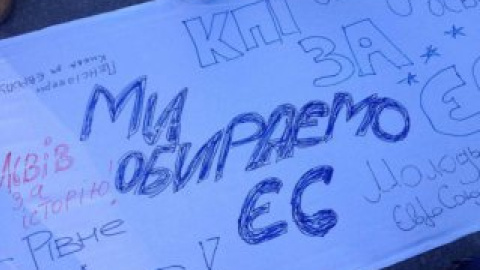 КПІ
ЗА
Пенсіонери
Києва за Європу
МИ
ОБИРАЄМО
ЄС
ЛЬВІВ
ЗА
ІСТОРІЮ!
Рівне
Молодь